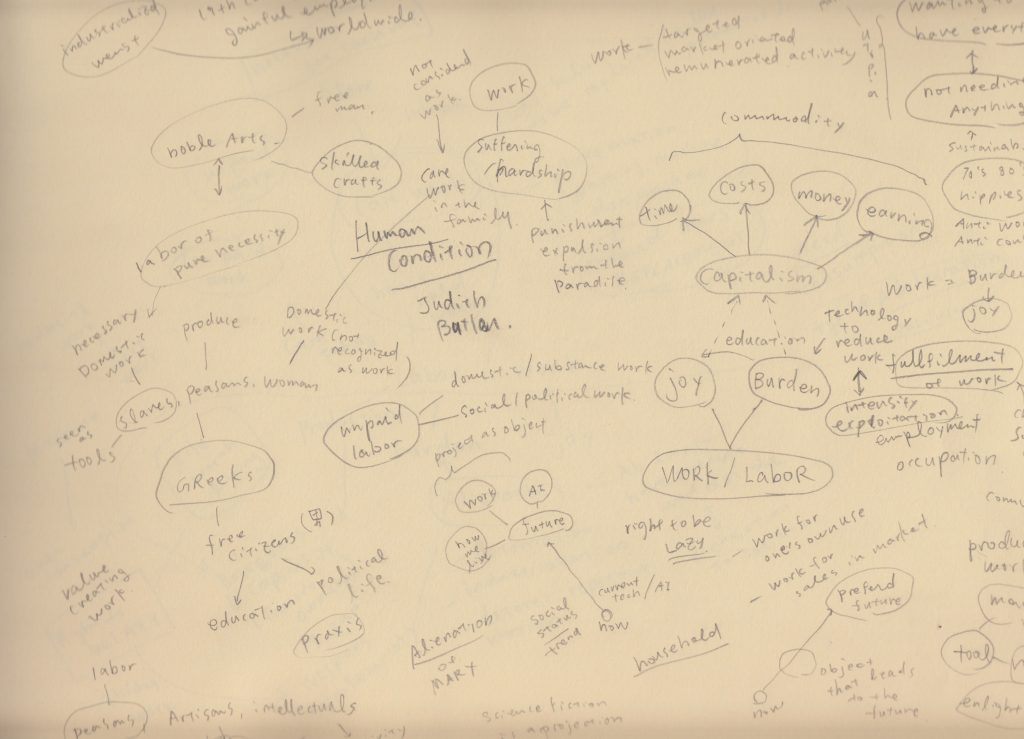 industrialized
gainful employ
worldwide.
work
targeted
market oriented
remunerated activity
wanting to
have everyt
not needin
Anything
sustainab
70's 80's
hippies
Anti wo
Anti con
not
considerd
as
work.
work
suffering
/hardship
punishment
expalsion
from the
Paradise
free
man.
noble Arts.
skilled
crafts
care
work
in the
family.
labor of
pure necessity
Human
Condition
Judith
Butler.
commodity
time
costs
money
earning
Capitalism
education
joy
Burden
WORK / LABOR
work = Burden
joy
technology
to
reduce
work
fullfilment
of work
intensify
exploitation
employment
occupation.
necessary
Domestic
work
produce
Domestic
work
(not
recognized
as work)
slaves, peasans. woman
seen
as
tools
GReeks
free
citizens (男)
education
political
life.
praxis
value
creating
work.
unpaid
labor
domestic / substance work
social / political work.
project as object
work
AI
future
how
we
live
current
tech / AI
now
social
status
trend
Alienation
of
MARX
right to be
LAZY
- work for
one's own use
- work for
sales in market.
household
preferd
future
object
that leads
to the
future
now
produc
work
ma
tool
enlight
labor
peasans, Artisans, intellectuals
science fiction
as a projection